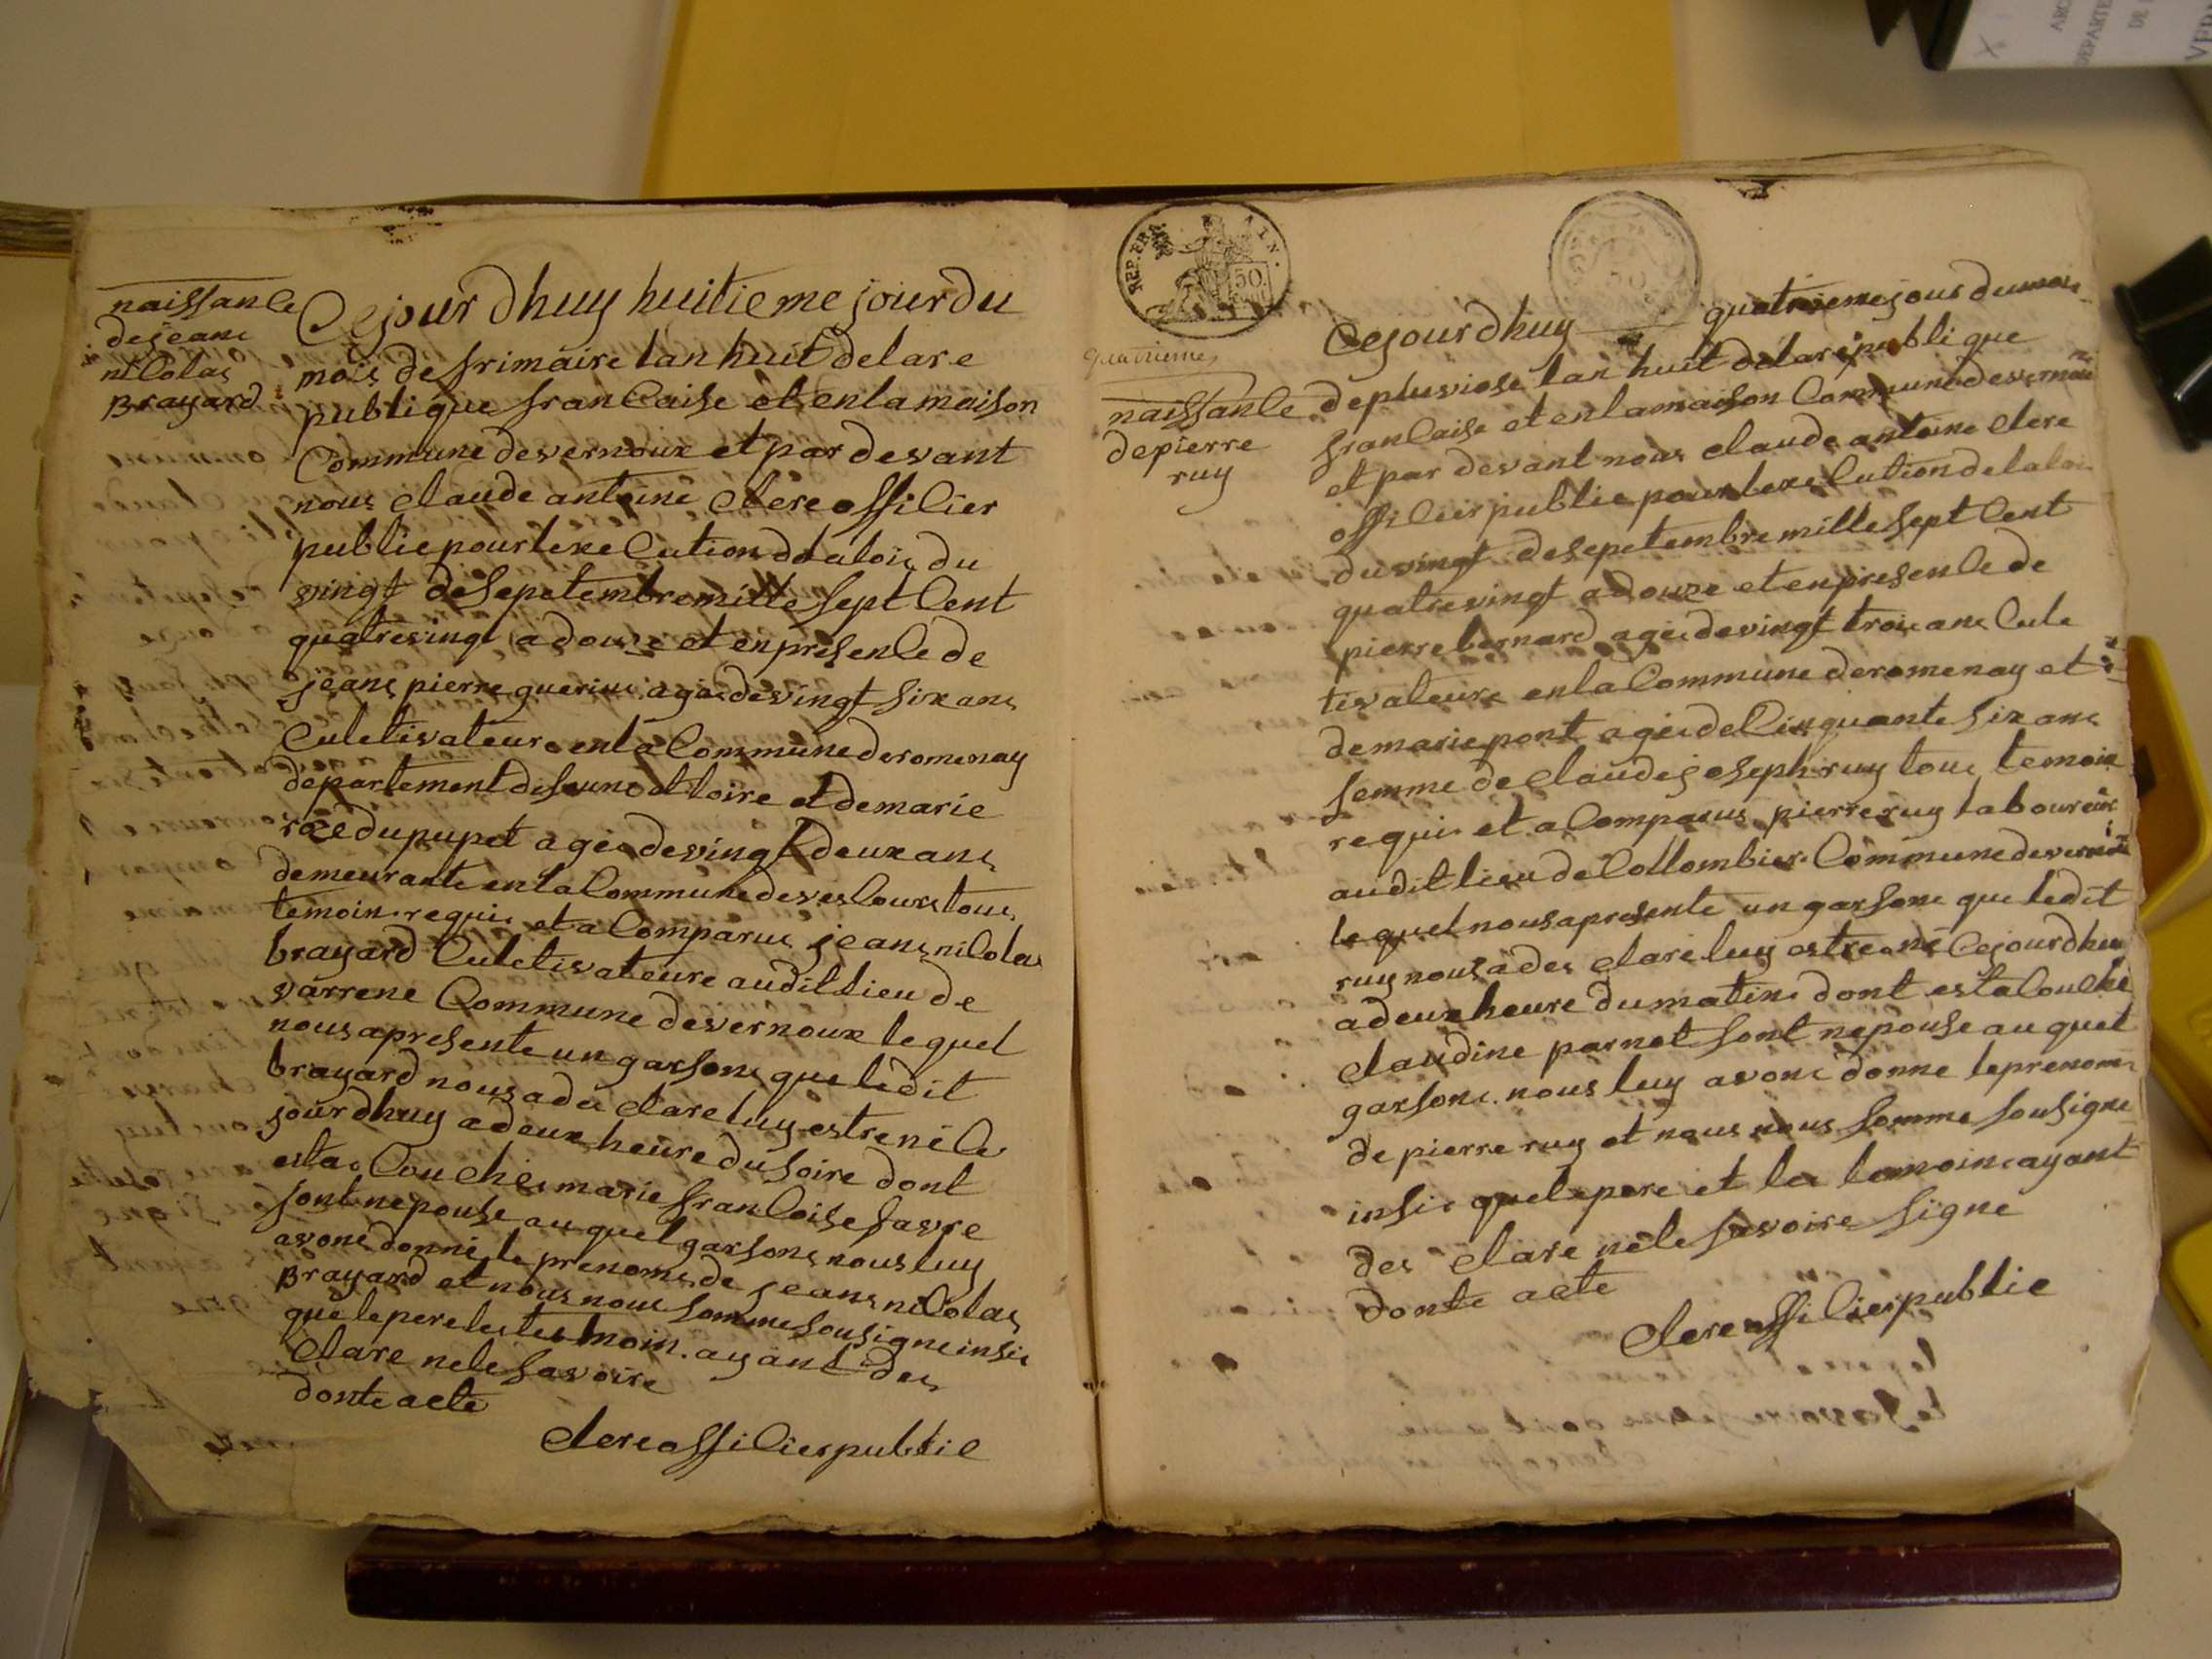 naissance
de jeane
nicolas
Brayard
Cejourdhuy huitieme jour du
mois de frimaire lan huit de la re
publique francaise et en la maison
Commune de vernoux et par devant
nous claude antoine clere officier
public pour lexecution de la lois du
vingt de sepetembre mille sept cent
quatrevingt a douze et en presence de
jeans pierre guerin agée de vingt six ans
culetivateure en la Commune de romenay
departement de seaune et loire et de marie
rose dupupet agée de vingt deux ans
demeurante en la Commune de vescours tous
temoin requis et a Comparue jeans nicolas
brayard culetivateure audit lieu de
varrene Commune de vernoux lequel
nous apresente un garsons que ledit
brayard nous a des clare luy estre né ce
jourdhuy a deux heure du soire dont
esta couchée marie francoise favre
sont nepouse au quel garsons nous luy
avons donné le prenoms de jeans nicolas
Brayard et nous nous somme sousigne insis
que le pere les tesmoin ayant des
clare nele savoire
donte acte
clere officier public
REP. FRA.
50
quatrieme
naissance
de pierre
ruy
Cejourdhuy quatrieme jour du mois
de pluviose lan huit de la republique
francaise et en la maison Commune de vernoux
et par devant nous claude antoine clere
officier public pour lexecution de la loi
du vingt de sepetembre mille sept cent
quatrevingt a douze et en presence de
pierre bernard agée de vingt trois ans cule
tivateure en la Commune de romenay et
de marie pont agée de cinquante six ans
femme de claude joseph ruy tous temoin
requis et a Comparus pierre ruy laboureur
audit lieu de Collombier Commune de vernoux
lequel nous apresente un garsons que ledit
ruy nous a des clare luy estre né Cejourdhui
a deux heure du matin dont esta couche
claudine parnet sont nepouse au quel
garsons nous luy avons donne le prenom
de pierre ruy et nous nous somme sousigne
insis que le pere et les temoins ayant
des clare nele savoire signe
donte acte
clere officier public